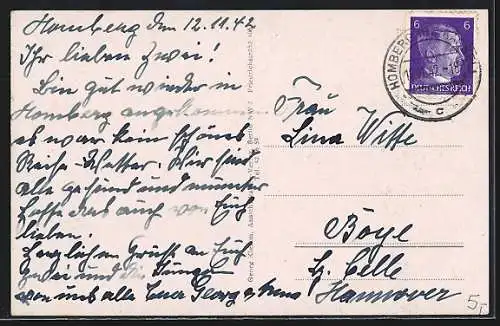 Homberg den 12.11.42
Ihr lieben zwei!
Bin gut wieder in
Homberg angekommen
es war kein schönes
Reise-Wetter. Wir sind
alle gesund und munter
hoffe das auch von Euch
lieben.
Herzlichen Gruß an Euch
zwei und die Jungen
von uns alle Euer Georg
6 6
DEUTSCHES REICH
HOMBERG
c
Frau
Lina Witte
Böye
b. Celle
Hannover